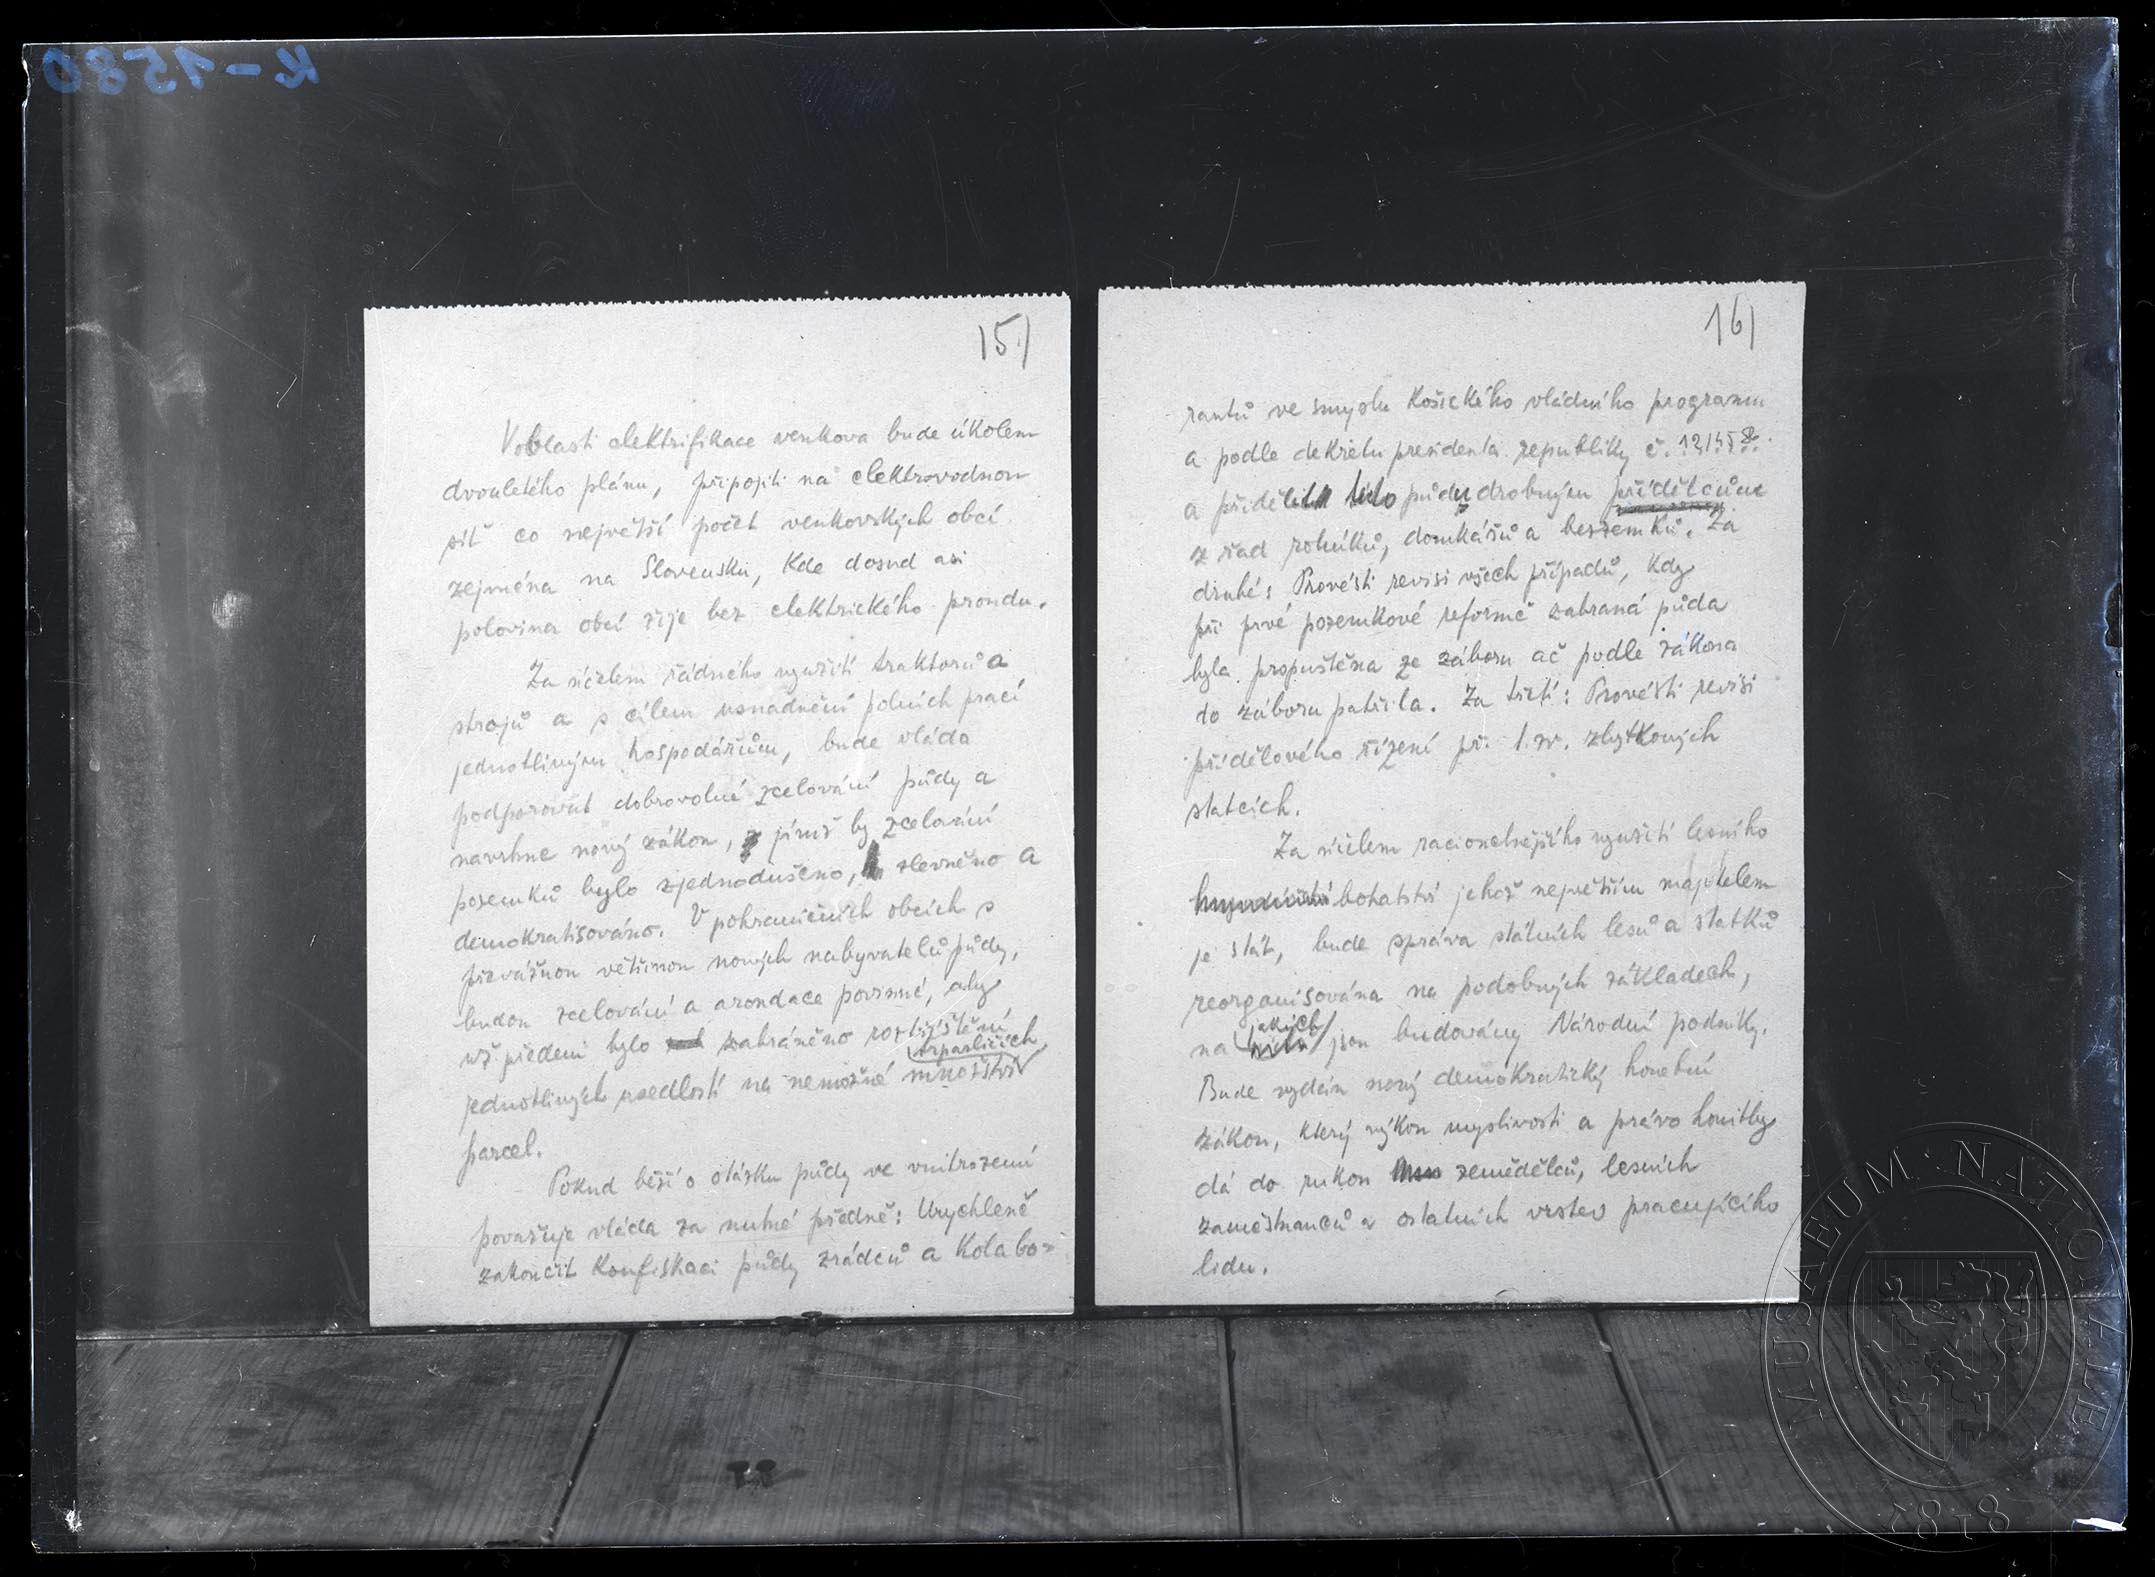 K-1580
15/
V oblasti elektrifikace venkova bude úkolem
dvouletého plánu, připojiti na elektrovodnou
síť co největší počet venkovských obcí
zejména na Slovensku, kde dosud asi
polovina obcí žije bez elektrického proudu.
Za účelem řádného využití traktorů a
strojů a s cílem usnadnění polních prací
jednotlivým hospodářům, bude vláda
podporovat dobrovolné zcelování půdy a
navrhne nový zákon, jímž by zcelování
pozemků bylo zjednodušeno, zlevněno a
demokratisováno. V pohraničních obcích s
převážnou většinou nových nabyvatelů půdy,
budou zcelování a arondace povinné, aby
už předem bylo zabráněno roztříštění
trpasličích
jednotlivých usedlostí na nemožné množství
parcel.
Pokud běží o otázku půdy ve vnitrozemí
považuje vláda za nutné předně: Urychleně
zakončit konfiskaci půdy zrádců a kolabo=
16/
rantů ve smyslu Košického vládního programu
a podle dekretu presidenta republiky č. 12/45 Sb.
a přidělit tuto půdu drobným přídělcům
z řad rolníků, domkářů a bezzemků. Za
druhé: Provésti revisi všech případů, kdy
při prvé pozemkové reformě zabraná půda
byla propuštěna ze záboru ač podle zákona
do záboru patřila. Za třetí: Provésti revisi
přídělového řízení při t. zv. zbytkových
statcích.
Za účelem racionelnějšího využití lesního
bohatství jehož největším majitelem
je stát, bude správa státních lesů a statků
reorganisována na podobných základech,
jakých
na jsou budovány Národní podniky.
Bude vydán nový demokratický honební
zákon, který výkon myslivosti a právo honitby
dá do rukou zemědělců, lesních
zaměstnanců a ostatních vrstev pracujícího
lidu.
MUSAEUM NATIONALE
1818